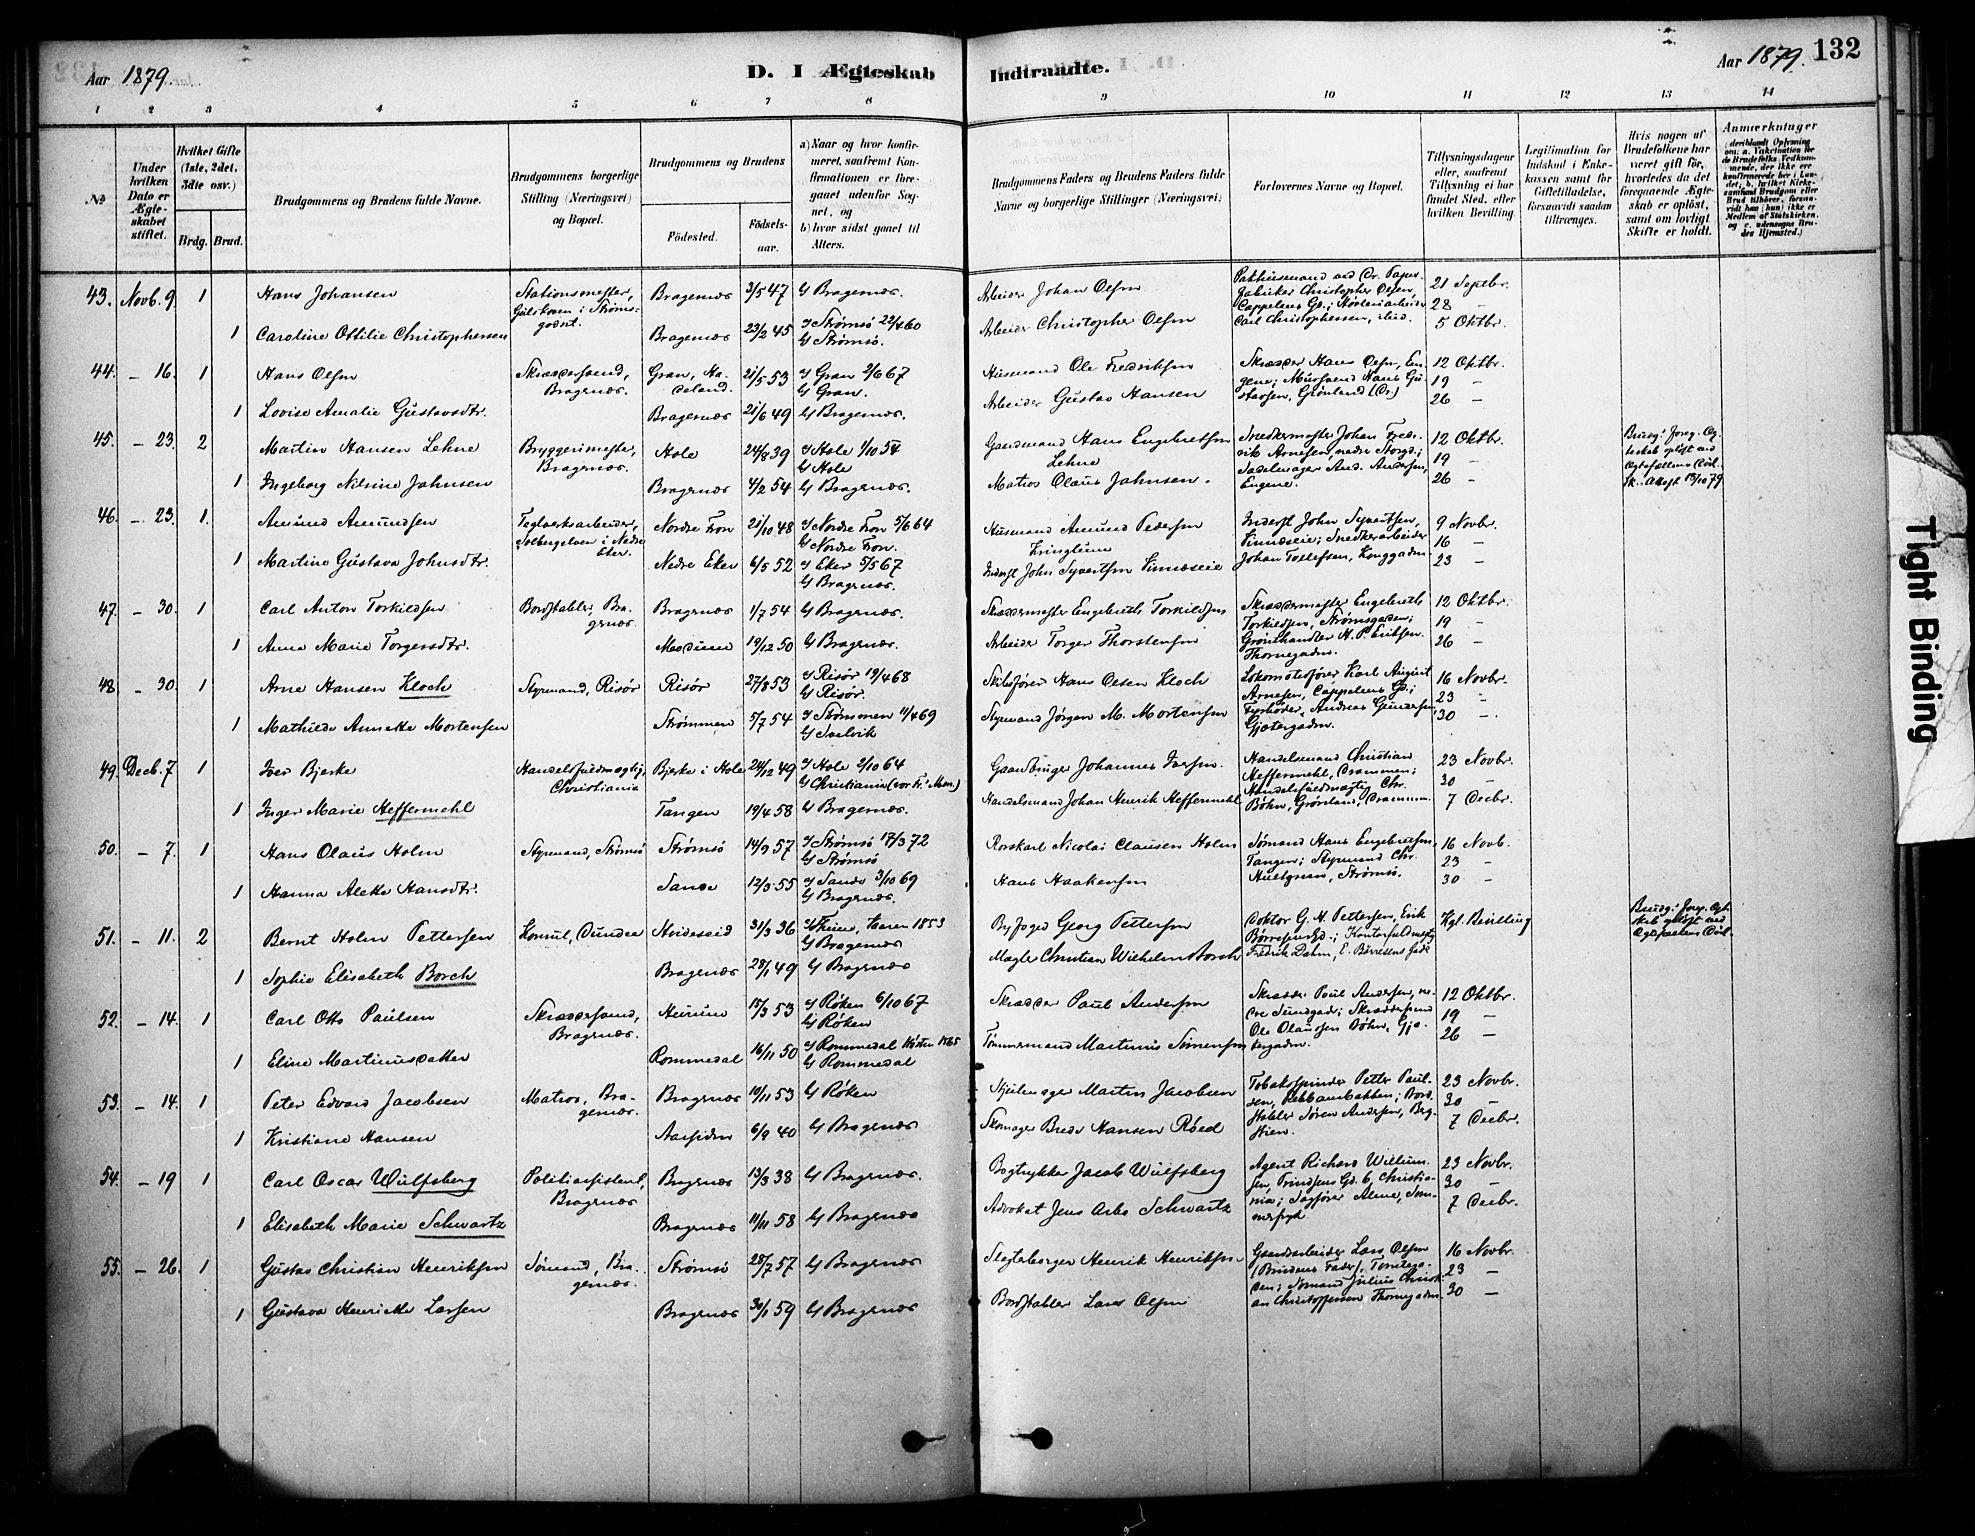 Aar 1879.
D. I Ægteskab Indtraadte.
Aar 1879. 132
1 2 3 4 5 6 7 8 9 10 11 12 13 14
No
Under hvilken Dato er Ægteskabet stiftet.
Hvilket Gifte (1ste, 2det, 3die osv.)
Brdg. Brud.
Brudgommens og Brudens fulde Navne.
Brudgommens borgerlige Stilling (Næringsvei) og Bopæl.
Brudgommens og Brudens
Födested.
Födselsaar.
a) Naar og hvor konfirmeret, saafremt Konfirmationen er foregaaet udenfor Sognet, og
b) hvor sidst gaaet til Alters.
Brudgommens Faders og Brudens Faders fulde Navne og borgerlige Stillinger (Næringsvei)
Forlovernes Navne og Bopæl.
Tillysningsdagene eller, saafremt Tillysning ei har fundet Sted, efter hvilken Bevilling.
Legitimation for Indskud i Enkekassen samt for Giftetilladelse, forsaavidt saadan tiltrænges.
Hvis nogen af Brudefolkene har været gift för, hvorledes da det foregaaende Ægteskab er oplöst, samt om lovligt Skifte er holdt.
Anmærkninger
43. Novb. 9 1 Hans Johansen Stationsmester, Gulskoven i Strømsgodset. Bragernæs 3/5 47 b/ Bragernæs. Arbeider Johan Olsen Christopher Olsen, Cappelens Gd.; 21 Septbr.
28 -
1 Caroline Ottilie Christophersen Bragernæs 22/2 45 a/ Strømsö 22/4 60 b/ Strømsö. Arbeider Christopher Olsen Carl Christophersen, ibid. 5 Oktbr.
44. - 16. 1 Hans Olsen Skræddersvend, Bragernæs. Gran, Hadeland. 21/5 53 a/ Gran 2/6 67 b/ Gran. Husmand Ole Fredriksen Skrædder Hans Olsen, Engene; Mursvend Hans Gustavsen, Grønland (Dr) 12 Oktbr.
19 -
1 Lovise Amalie Gustavsdtr. Bragernæs 21/6 49 b/ Bragernæs. Arbeider Gustav Hansen 26 -
45. - 23. 2 Martin Hansen Lehne Bryggerimester, Bragernæs. Hole 24/8 39 a/ Hole 1/10 54 b/ Hole Gaardmand Hans Engebretsen Lehne Snedkermester Johan Fredrik Arnesen, nedre Storgd.; Sadelmager And. Andersen, Engene. 12 Oktbr.
19 -
1 Ingeborg Nilsine Jahnsen Bragernæs 4/2 54 b/ Bragernæs. Matros Olaus Jahnsen. 26 -
46. - 23. 1. Amund Amundsen Teglverksarbeider, Solbergelven i Nedre Eker. Nordre Fron 21/10 48 a/ Nordre Fron 5/6 64 b/ Nordre Fron. Husmand Amund Pedersen Kringlum Inderst John Syvertsen, Vinnæseie; Snedkerarbeider Johan Tollefsen, Konggaden. 9 Novbr.
16 -
1 Martine Gustava Johnsdtr. Nedre Eker 6/5 52 a/ Eker 5/5 67 b/ Bragernæs. Inderst John Syvertsen Vinnæseie 23 -
47. - 30. 1 Carl Anton Torkildsen Bordstabler, Bragernæs. Bragernæs 1/7 54 b/ Bragernæs. Skræddermester Engebreth Torkildsen Skræddermester Engebreth Torkildsen, Strømsgaden; Grønthandler H. P. Eriksen. Thornegaden. 12 Oktbr.
19 -
1 Anna Marie Torgersdtr. Modum 19/12 50 b/ Bragernæs. Arbeider Torger Thorstensen 26 -
48 - 30. 1 Arne Hansen Kloch Styrmand, Risör Risör 27/8 53 a/ Risör 19/4 68 b/ Risör. Skibsfører Hans Olsen Kloch Lokomotivfører Karl August Arnesen, Cappelens Gd.; Fyrbøder, Andreas Gundersen, Gjetergaden. 16 Novbr.
23 -
1 Mathilde Annette Mortensen Strømmen 5/7 54 a/ Strømmen 11/4 69 b/ Svelvik Styrmand Jørgen M. Mortensen 30 -
49. Decb. 7 1 Iver Bjerke Handelsfuldmægtig, Christiania Bjerke i Hole 24/12 49 a/ Hole 2/10 64 b/ Christiania (vor Fr's Men.) Gaardbruger Johannes Iversen. Handelsmand Christian Heffermehl, Drammen; Handelsfuldmægtig Chr. Bøhn, Grønland, Drammen. 23 Novbr.
30 -
1 Inger Marie Heffermehl Tangen 19/4 58 b/ Bragernæs. Handelsmand Johan Henrik Heffermehl 7 Decbr.
50. - 7. 1 Hans Olaus Holm Styrmand, Strømsö Strømsö 14/9 57 a/ Strømsö 17/3 72 b/ Strømsö Rorskarl Nicolai Clausen Holm Sømand Hans Engebretsen, Tangen; Styrmand Chr. Hultgreen, Strømsö. 16 Novb.
23 -
1 Hanna Alette Hansdtr. Sande 12/3 55 a/ Sande 3/10 69 b/ Bragernæs. Hans Haakensen 30 -
51. - 11. 2 Bernt Holm Pettersen Konsul, Dundee Hvideseid 31/3 36 1853 b/ Bragernæs Byfoged Georg Pettersen Doktor G. H. Pettersen, Erik Børresens Gd.; Kontorfuldmegtg Fredrik Dahm, E. Børresens Gade Kgl. Bevilling
1 Sophie Elisabeth Borch Bragernæs 28/1 49 b/ Bragernæs Mægler Christian Wilhelm Borch
52. - 14. 1 Carl Otto Paulsen Skræddersvend, Bragernæs. Hurum 15/3 53 a/ Røken 6/10 67 b/ Røken Skrædder Paul Andersen Skrædder Paul Andersen, nedre Sundgade; Skræddersvend Ole Olaussen Bøhn, Gjetergaden. 12 Oktbr.
19 -
1 Eline Martinusdatter Rommedal 16/11 50 a/ Rommedal Høsten 1865 b/ Rommedal Tømmermand Martinus Simensen 26 -
53. - 14. 1 Peter Edvard Jacobsen Matros, Bragernæs. Bragernæs 19/11 53 b/ Røken Martin Jacobsen Tobaksspinder Petter Paulsen, Rebbanebakken; Bordstabler Søren Andersen, Bergstien. 23 Novbr.
30 -
1 Kristiane Hansen Aassiden 6/9 40 b/ Bragernæs Skomager Brede Hansen Røed 7 Decbr.
54. - 19 1 Carl Oscar Wulfsberg Politiassistent, Bragernæs Bragernæs 13/3 38 b/ Bragernæs. Bogtrykker Jacob Wulfsberg Agent Richard Willumsen, Prindsens Gd. 6, Christiania; Sagfører 23 Novbr.
30 -
1 Elisabeth Marie Schwartz Bragernæs 11/11 58 b/ Bragernæs Advokat Jens Arbo Schwartz 7 Decbr.
55. - 26. 1 Gustav Christian Henriksen Sømand, Bragernæs. Strømsö 28/7 57 b/ Bragernæs Henrik Henriksen Gaardarbeider Lars Olsen (Brudens Fader), Tomtegaden; Sømand Julius Christian Christoffersen Thornegaden. 16 Novbr.
23 -
1 Gustava Henriette Larsen Bragernæs 30/1 59 b/ Bragernæs Bordstabler Lars Olsen 30 -
Tight Binding